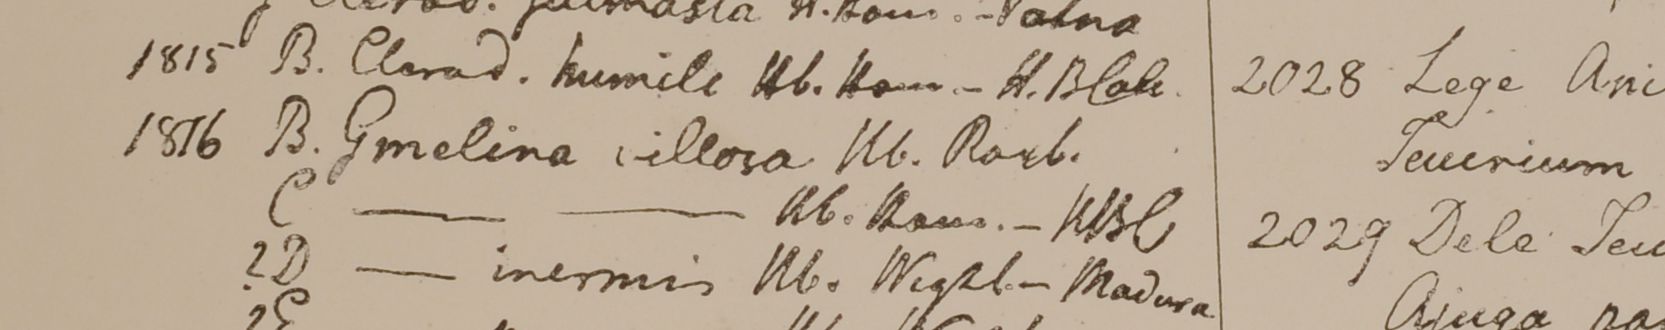 Clerod. H. Ham. - Patna
1815 B. Clerod. humile Hb. Ham - H. B Calc.
1816 B. Gmelina villosa Hb. Roxb.
C — — Hb. Ham. - HBC
?D — inermis Hb. Wight - Madura
?E
2028 Lege
Teucrium
2029 Dele Teu
Ajuga